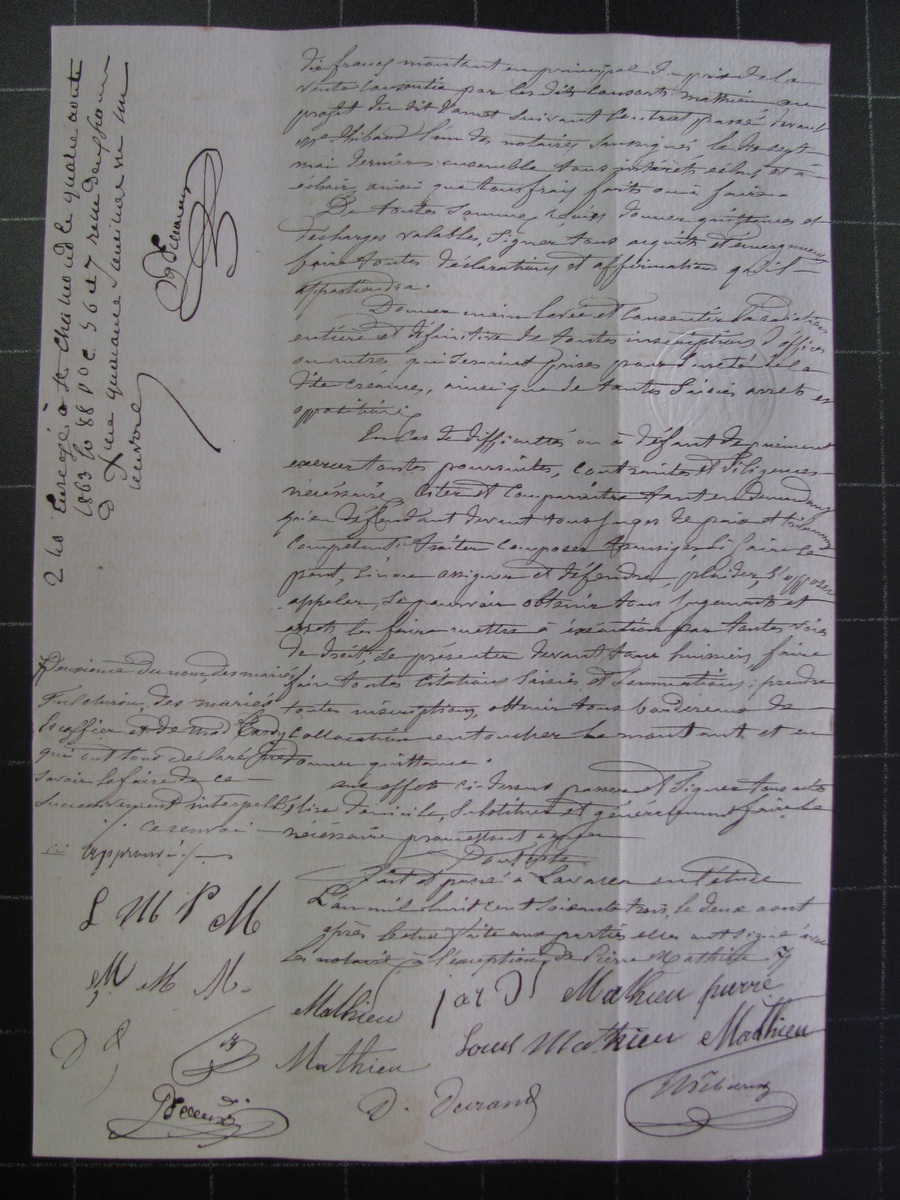 dix francs montant en principal du prix de la
vente consentie par les dits consorts Mathieu au
profit du dit Jamet suivant contrat passé devant
Me Thibaud l'un des notaires soussignés le
mai dernier ensemble tous intérêts échus et à
échoir, ainsi que tous frais faits ou à faire.
De toutes sommes reçues donner quittances et
décharges valables, signer tous acquits et émargements
faire toutes déclarations et affirmations qu'il
appartiendra.
Donner main levée et consentir la radiation
entière et définitive de toutes inscriptions d'office
ou autres qui seraient prises pour sureté de la
dite créance, ainsi que de toutes saisies arrets et
oppositions.
En cas de difficultés ou à défaut de paiement
exercer toutes poursuites, contraintes et diligences
nécessaires, citer et comparaitre tant en demandant
qu'en défendant devant tous juges de paix et tribunaux
compétents, traiter composer transiger si faire se
peut, sinon assigner et défendre, plaider, s'opposer
appeler, se pourvoir obtenir tous jugements et
arrets les faire mettre à exécution par toutes voies
de droit, se présenter devant tous huissiers, faire
faire toutes citations saisies et sommations; prendre
toutes inscriptions, obtenir tous bordereaux de
collocation en toucher le montant et en
donner quittance.
aux effets ci-dessus passer et signer tous actes
élire domicile, substituer et généralement faire le
nécessaire promettant
Dont acte
Fait et passé à en l'étude
L'an mil huit cent soixante trois, le deux aout
après lecture faite aux parties elles ont signé avec
les notaires à l'exception de Pierre Mathieu
2 40 Enregé à St Chamond le quatre aout
1863 fo 88 Vo C 5 6 et 7 reçu deux francs
Dxme quarante centimes
renvoi
du nom, des mariés
Fulchiron, des mariés
Escoffier et de
qui ont tous déclaré ne
savoir le faire de ce
interpellés
ce renvoi
approuvé
L M P M
M M M.
Mathieu
Mathieu pierre
Mathieu
Louis Mathieu
Mathieu
D. Durand